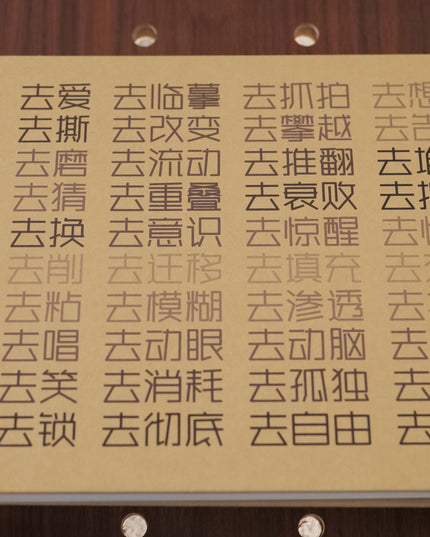 去爱 去临摹 去抓拍 去想
去撕 去改变 去攀越 去告
去磨 去流动 去推翻 去堆
去猜 去重叠 去衰败 去
去换 去意识 去惊醒 去
去削 去迁移 去填充 去
去粘 去模糊 去渗透 去
去唱 去动眼 去动脑 去
去笑 去消耗 去孤独 去
去锁 去彻底 去自由 去